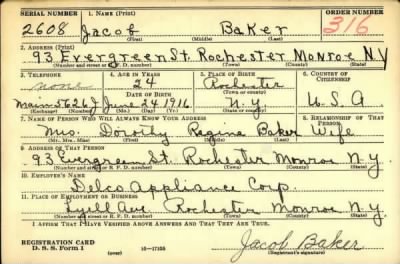 SERIAL NUMBER 1. NAME (Print) ORDER NUMBER
2608 Jacob Baker 316
(First) (Middle) (Last)
2. ADDRESS (Print)
93 Evergreen St. Rochester Monroe N.Y.
(Number and street or R. F. D. number) (Town) (County) (State)
3. TELEPHONE 4. AGE IN YEARS 5. PLACE OF BIRTH 6. COUNTRY OF CITIZENSHIP
none 24 Rochester
DATE OF BIRTH (Town or county)
Main 5626J June 24 1916 N.Y. U.S.A
(Exchange) (Number) (Mo.) (Day) (Yr.) (State or country)
7. NAME OF PERSON WHO WILL ALWAYS KNOW YOUR ADDRESS 8. RELATIONSHIP OF THAT PERSON
Mrs. Dorothy Regina Baker Wife
(Mr., Mrs., Miss) (First) (Middle) (Last)
9. ADDRESS OF THAT PERSON
93 Evergreen St. Rochester Monroe N.Y.
(Number and street or R. F. D. number) (Town) (County) (State)
10. EMPLOYER'S NAME
Delco Appliance Corp.
11. PLACE OF EMPLOYMENT OR BUSINESS
Lyell Ave. Rochester Monroe N.Y.
(Number and street or R. F. D. number) (Town) (County) (State)
I AFFIRM THAT I HAVE VERIFIED ABOVE ANSWERS AND THAT THEY ARE TRUE.
REGISTRATION CARD
D. S. S. Form 1 (over) 16—17105 Jacob Baker
(Registrant's signature)